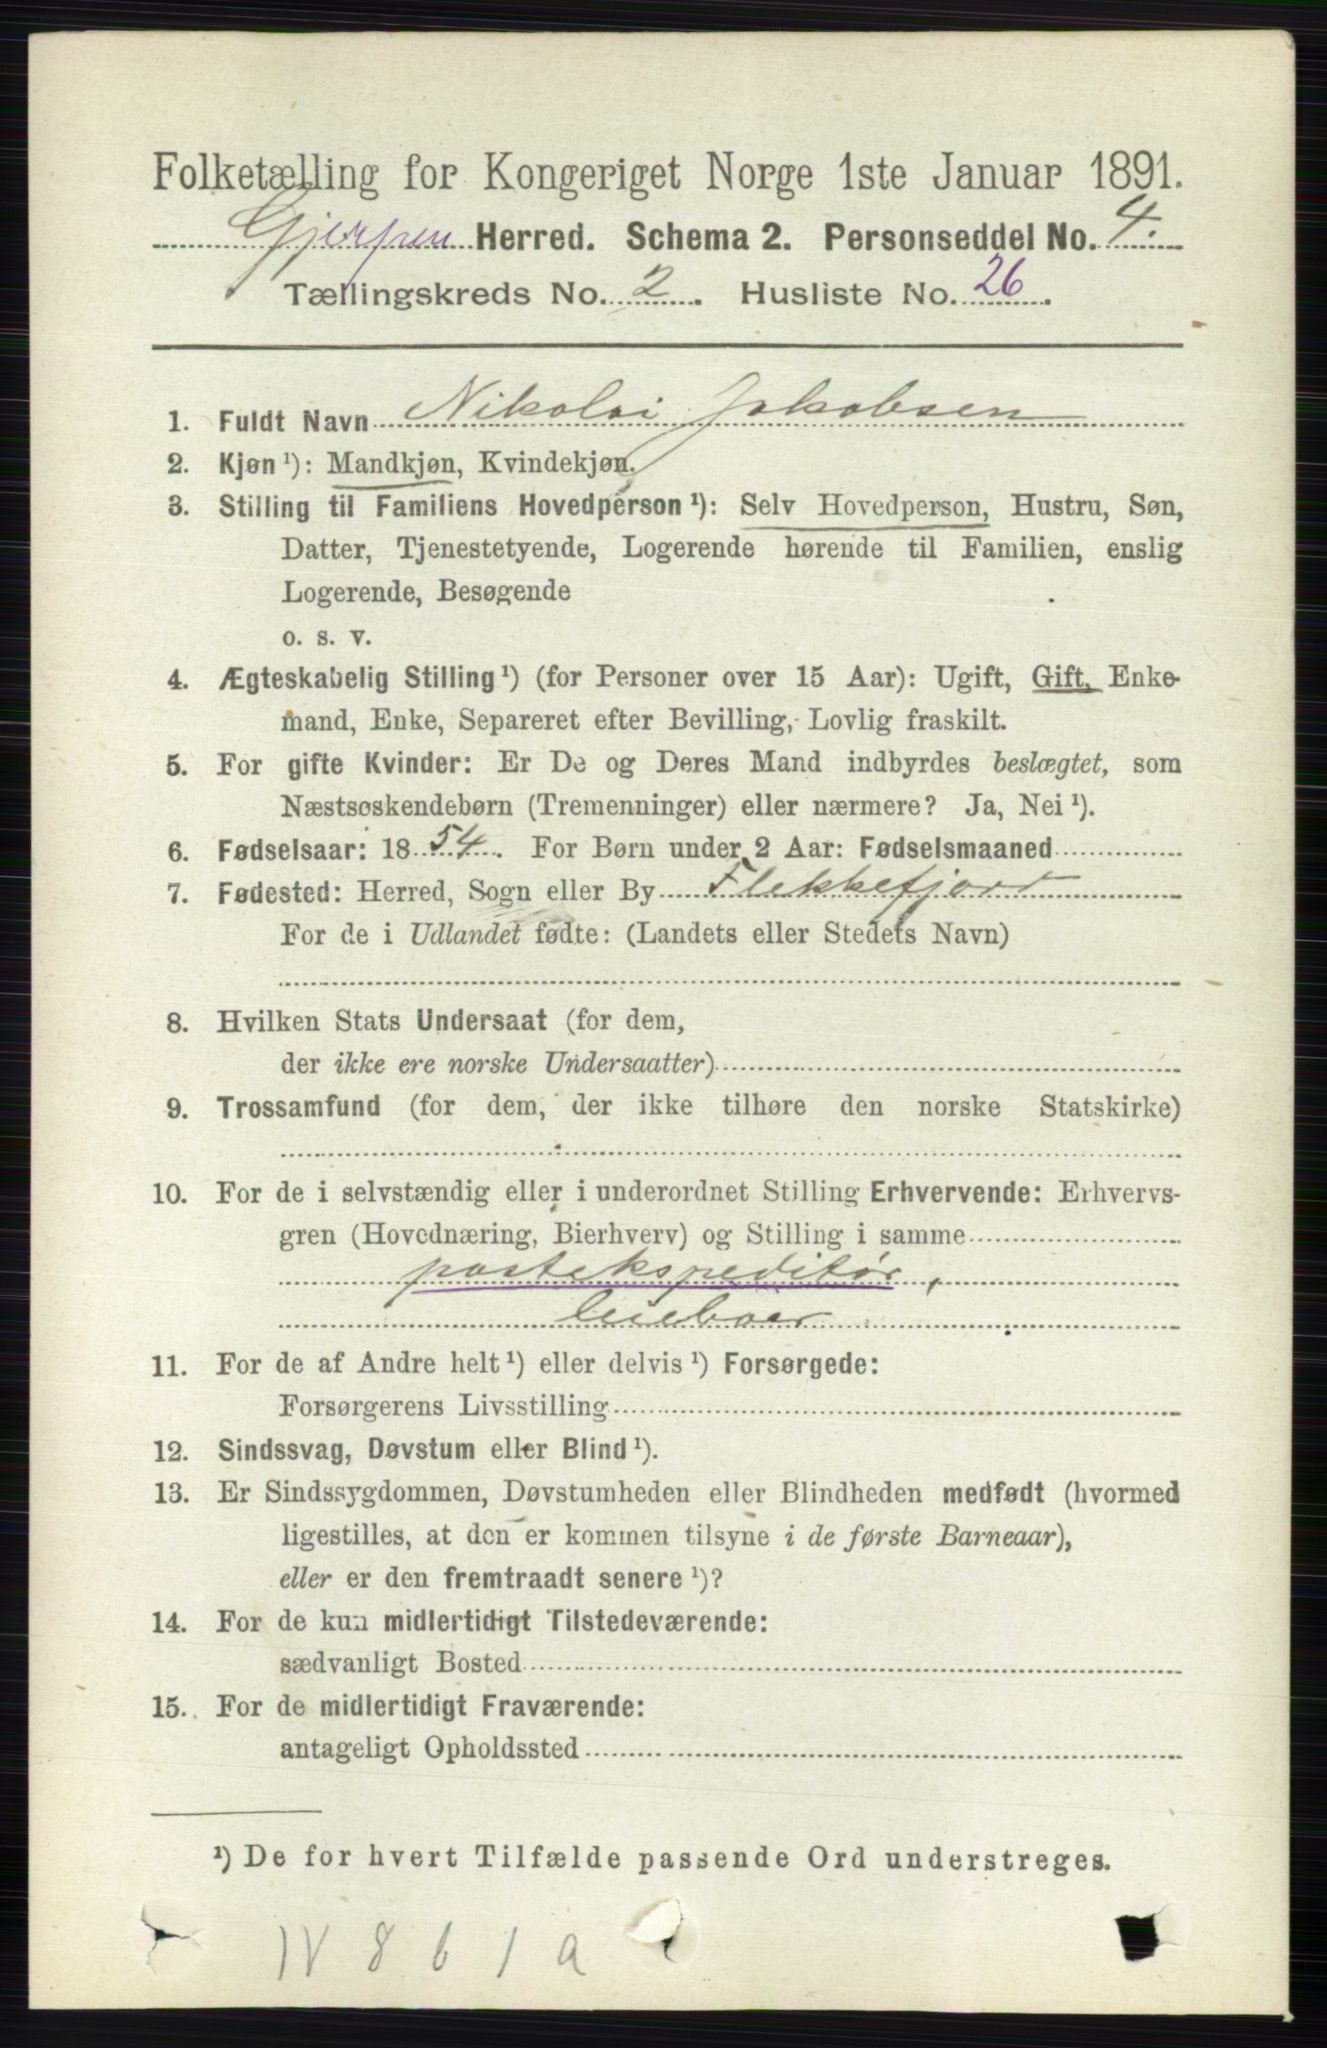 Folketælling for Kongeriget Norge 1ste Januar 1891.
Gjerpen Herred. Schema 2. Personseddel No. 4.
Tællingskreds No. 2. Husliste No. 26.
1. Fuldt Navn Nikolai Jakobsen
2. Kjøn ¹): Mandkjøn, Kvindekjøn.
3. Stilling til Familiens Hovedperson ¹): Selv Hovedperson, Hustru, Søn,
Datter, Tjenestetyende, Logerende hørende til Familien, enslig
Logerende, Besøgende
o. s. v.
4. Ægteskabelig Stilling ¹) (for Personer over 15 Aar): Ugift, Gift, Enke-
mand, Enke, Separeret efter Bevilling, Lovlig fraskilt.
5. For gifte Kvinder: Er De og Deres Mand indbyrdes beslægtet, som
Næstsøskendebørn (Tremenninger) eller nærmere? Ja, Nei ¹).
6. Fødselsaar: 1854. For Børn under 2 Aar: Fødselsmaaned
7. Fødested: Herred, Sogn eller By Flekkefjort
For de i Udlandet fødte: (Landets eller Stedets Navn)
8. Hvilken Stats Undersaat (for dem,
der ikke ere norske Undersaatter)
9. Trossamfund (for dem, der ikke tilhøre den norske Statskirke)
10. For de i selvstændig eller i underordnet Stilling Erhvervende: Erhvervs-
gren (Hovednæring, Bierhverv) og Stilling i samme
postekspeditør,
leieboer
11. For de af Andre helt ¹) eller delvis ¹) Forsørgede:
Forsørgerens Livsstilling
12. Sindssvag, Døvstum eller Blind ¹).
13. Er Sindssygdommen, Døvstumheden eller Blindheden medfødt (hvormed
ligestilles, at den er kommen tilsyne i de første Barneaar),
eller er den fremtraadt senere ¹)?
14. For de kun midlertidigt Tilstedeværende:
sædvanligt Bosted
15. For de midlertidigt Fraværende:
antageligt Opholdssted
¹) De for hvert Tilfælde passende Ord understreges.
IV 8 6 1 a